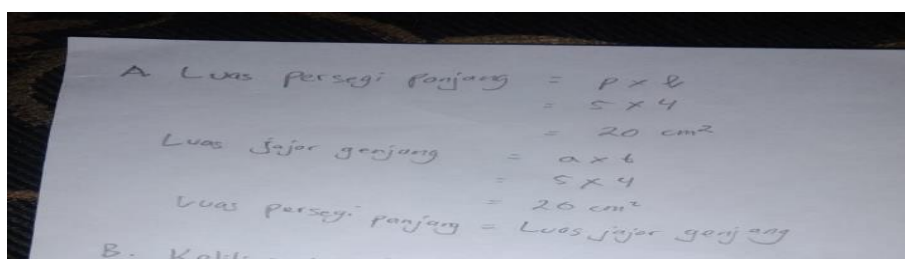 A Luas persegi panjang = p x l
= 5 x 4
= 20 cm²
Luas jajar genjang = a x t
= 5 x 4
= 20 cm²
Luas persegi panjang = Luas jajar genjang
B.